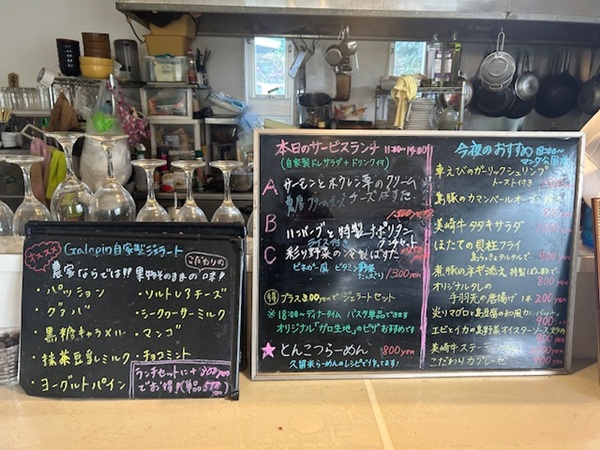 オススメ
Galapin自家製ジェラート
こだわりの
農家ならでは!!果物そのままの味!
・パッション
・グァバ
・黒糖キャラメル
・抹茶豆乳ミルク
・ヨーグルトパイン
・ソルトレアチーズ
・シークヮーサーミルク
・マンゴ
・チョコミント
ランチセットに+300yen
でお得!(単品
本日のサービスランチ 11:30~14:30
(自家製ドレサラダ+ドリンク付)
A サーモンとホウレン草のクリーム
チーズぱすた
B ハンバーグと特製ナポリタン
ライス付き ランチセット
C 彩り野菜の冷製ぱすた
ビネガー風 ビタミン野菜たっぷり 1300yen
得 プラス300yenでジェラートセット
※18:00~ディナータイム パスタ単品でできます
オリジナル「ガロ生地」のピザおすすめです
★とんこつらーめん 800yen
久留米らーめんのレシピで作ってます!
今夜のおすすめ 18:00~
車えびのガーリックシュリンプ
トースト付き
島豚のカマンベールオーブン焼き
美崎牛タタキサラダ
ほたての貝柱フライ
島らっきょタルタルで
煮豚のネギ添え 特製ぽん酢で
オリジナルタレの
手羽先の唐揚げ 1本 200yen
炙りマグロと島豆腐の和風カルパッチョ
エビとイカの島野菜オイスターソース炒め
美崎牛ステーキ
こだわりカプレーゼ 900yen